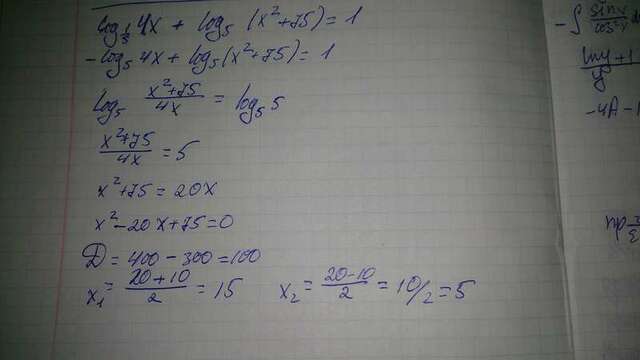 log_{1/5} 4x + log_5 (x²+75) = 1
-log_5 4x + log_5 (x²+75) = 1
log_5 \frac{x²+75}{4x} = log_5 5
\frac{x²+75}{4x} = 5
x²+75 = 20x
x²-20x+75=0
D = 400 - 300 = 100
x_1 = \frac{20+10}{2} = 15 x_2 = \frac{20-10}{2} = 10/2 = 5